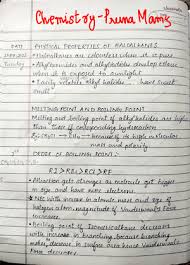 Chemistry - Prerna Mam's
DATE
PHYSICAL PROPERTIES OF HALOALKANES
Tuesday
* Haloalkanes are colourless when it is pure
* Alkyl bromides and alkyl iodides develop colour
when it is exposed to sunlight
* Easily volatile alkyl halides - have sweet
smell
MELTING POINT AND BOILING POINT
Melting and boiling point of alkyl halides are higher
than their corresponding hydrocarbons
because of its high molecular
mass and polarity
ORDER OF BOILING POINT:
RI>RBr>RCl>RF
* Attraction gets stronger as molecules get bigger
in size and have more electrons
* with increase in atomic mass and size of
halogen atom, magnitude of Vanderwaals Force
increases
* Boiling point of isomeric haloalkanes decreases
with increase in branching because branching
makes decrease in surface area hence Vanderwaals
Force decreases